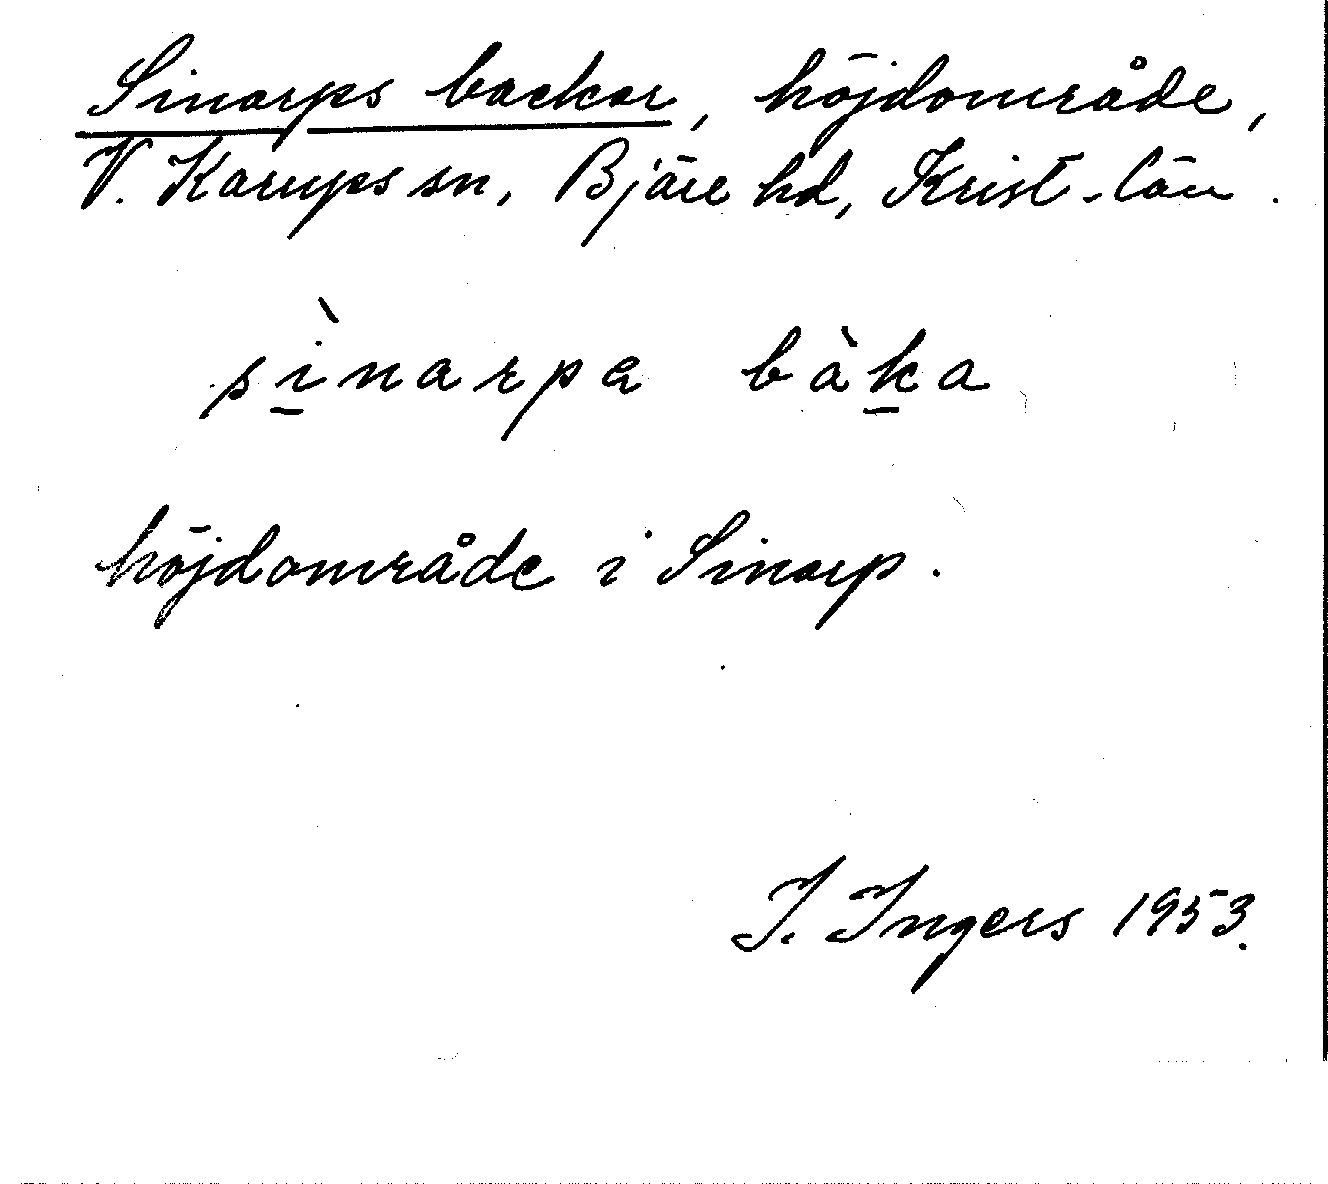 Sinarps backar, höjdområde,
V. Karups sn, Bjäre hd, Krist. län.
sìnarpa bàka
höjdområde i Sinarp.
I. Ingers 1953.